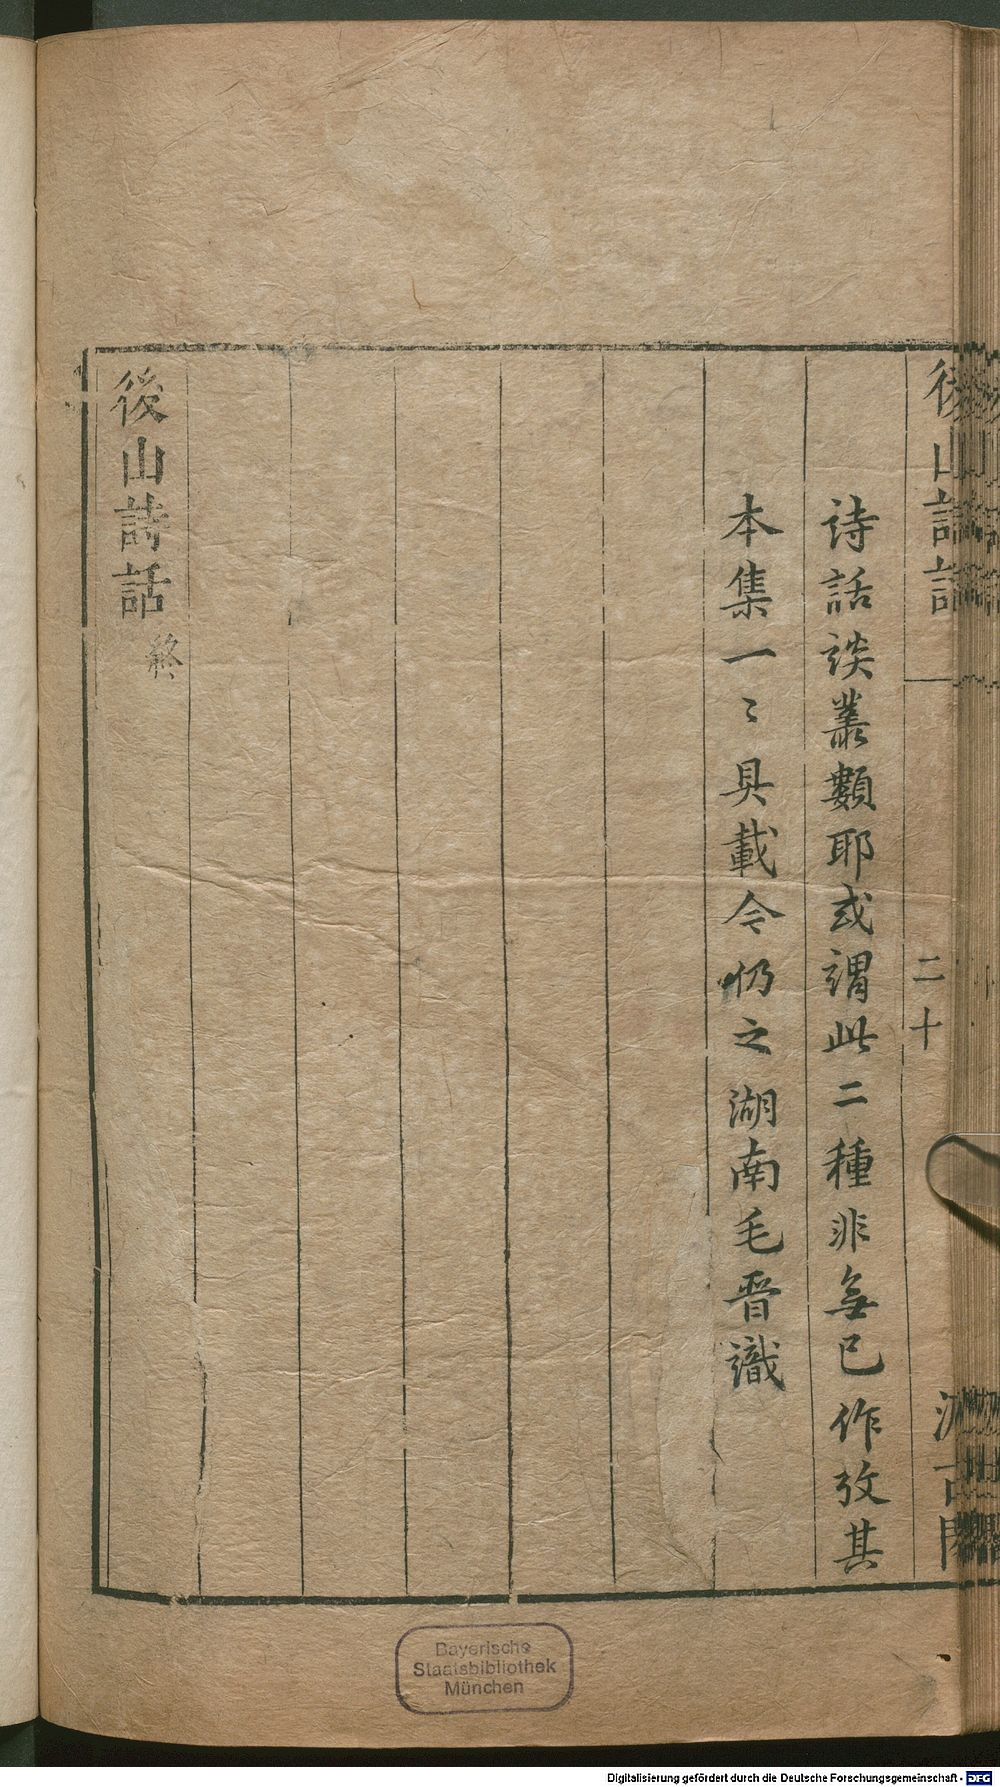 後山詩話
二十
汲古閣
詩話談叢類耶或謂此二種非無已作攷其
本集一〻具載今仍之湖南毛晉識
後山詩話終
Bayerische
Staatsbibliothek
München
Digitalisierung gefördert durch die Deutsche Forschungsgemeinschaft - DFG